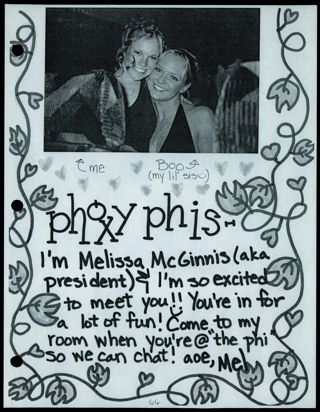 ↑me Boo↗
(my lil' sis☺)
phoxy phis-
I'm Melissa McGinnis (aka
president) & I'm so excited
to meet you!! You're in for
a lot of fun! Come to my
room when you're @ "the phi"
so we can chat! aoe, Mel
66